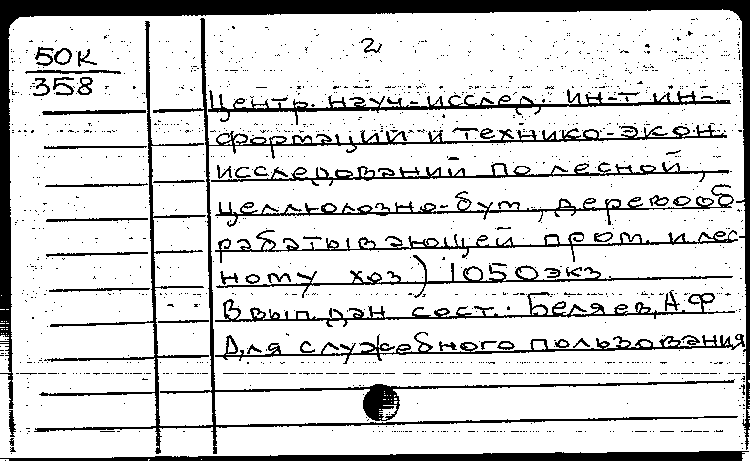 50К
358
2
Центр. науч.-исслед. ин-т ин-
формации и технико-экон.
исследований по лесной,
целлюлозно-бум., деревооб-
рабатывающей пром. и лес-
ному хоз) 1050экз.
В вып. дан. сост.: Беляев, А.Ф
Для служебного пользования